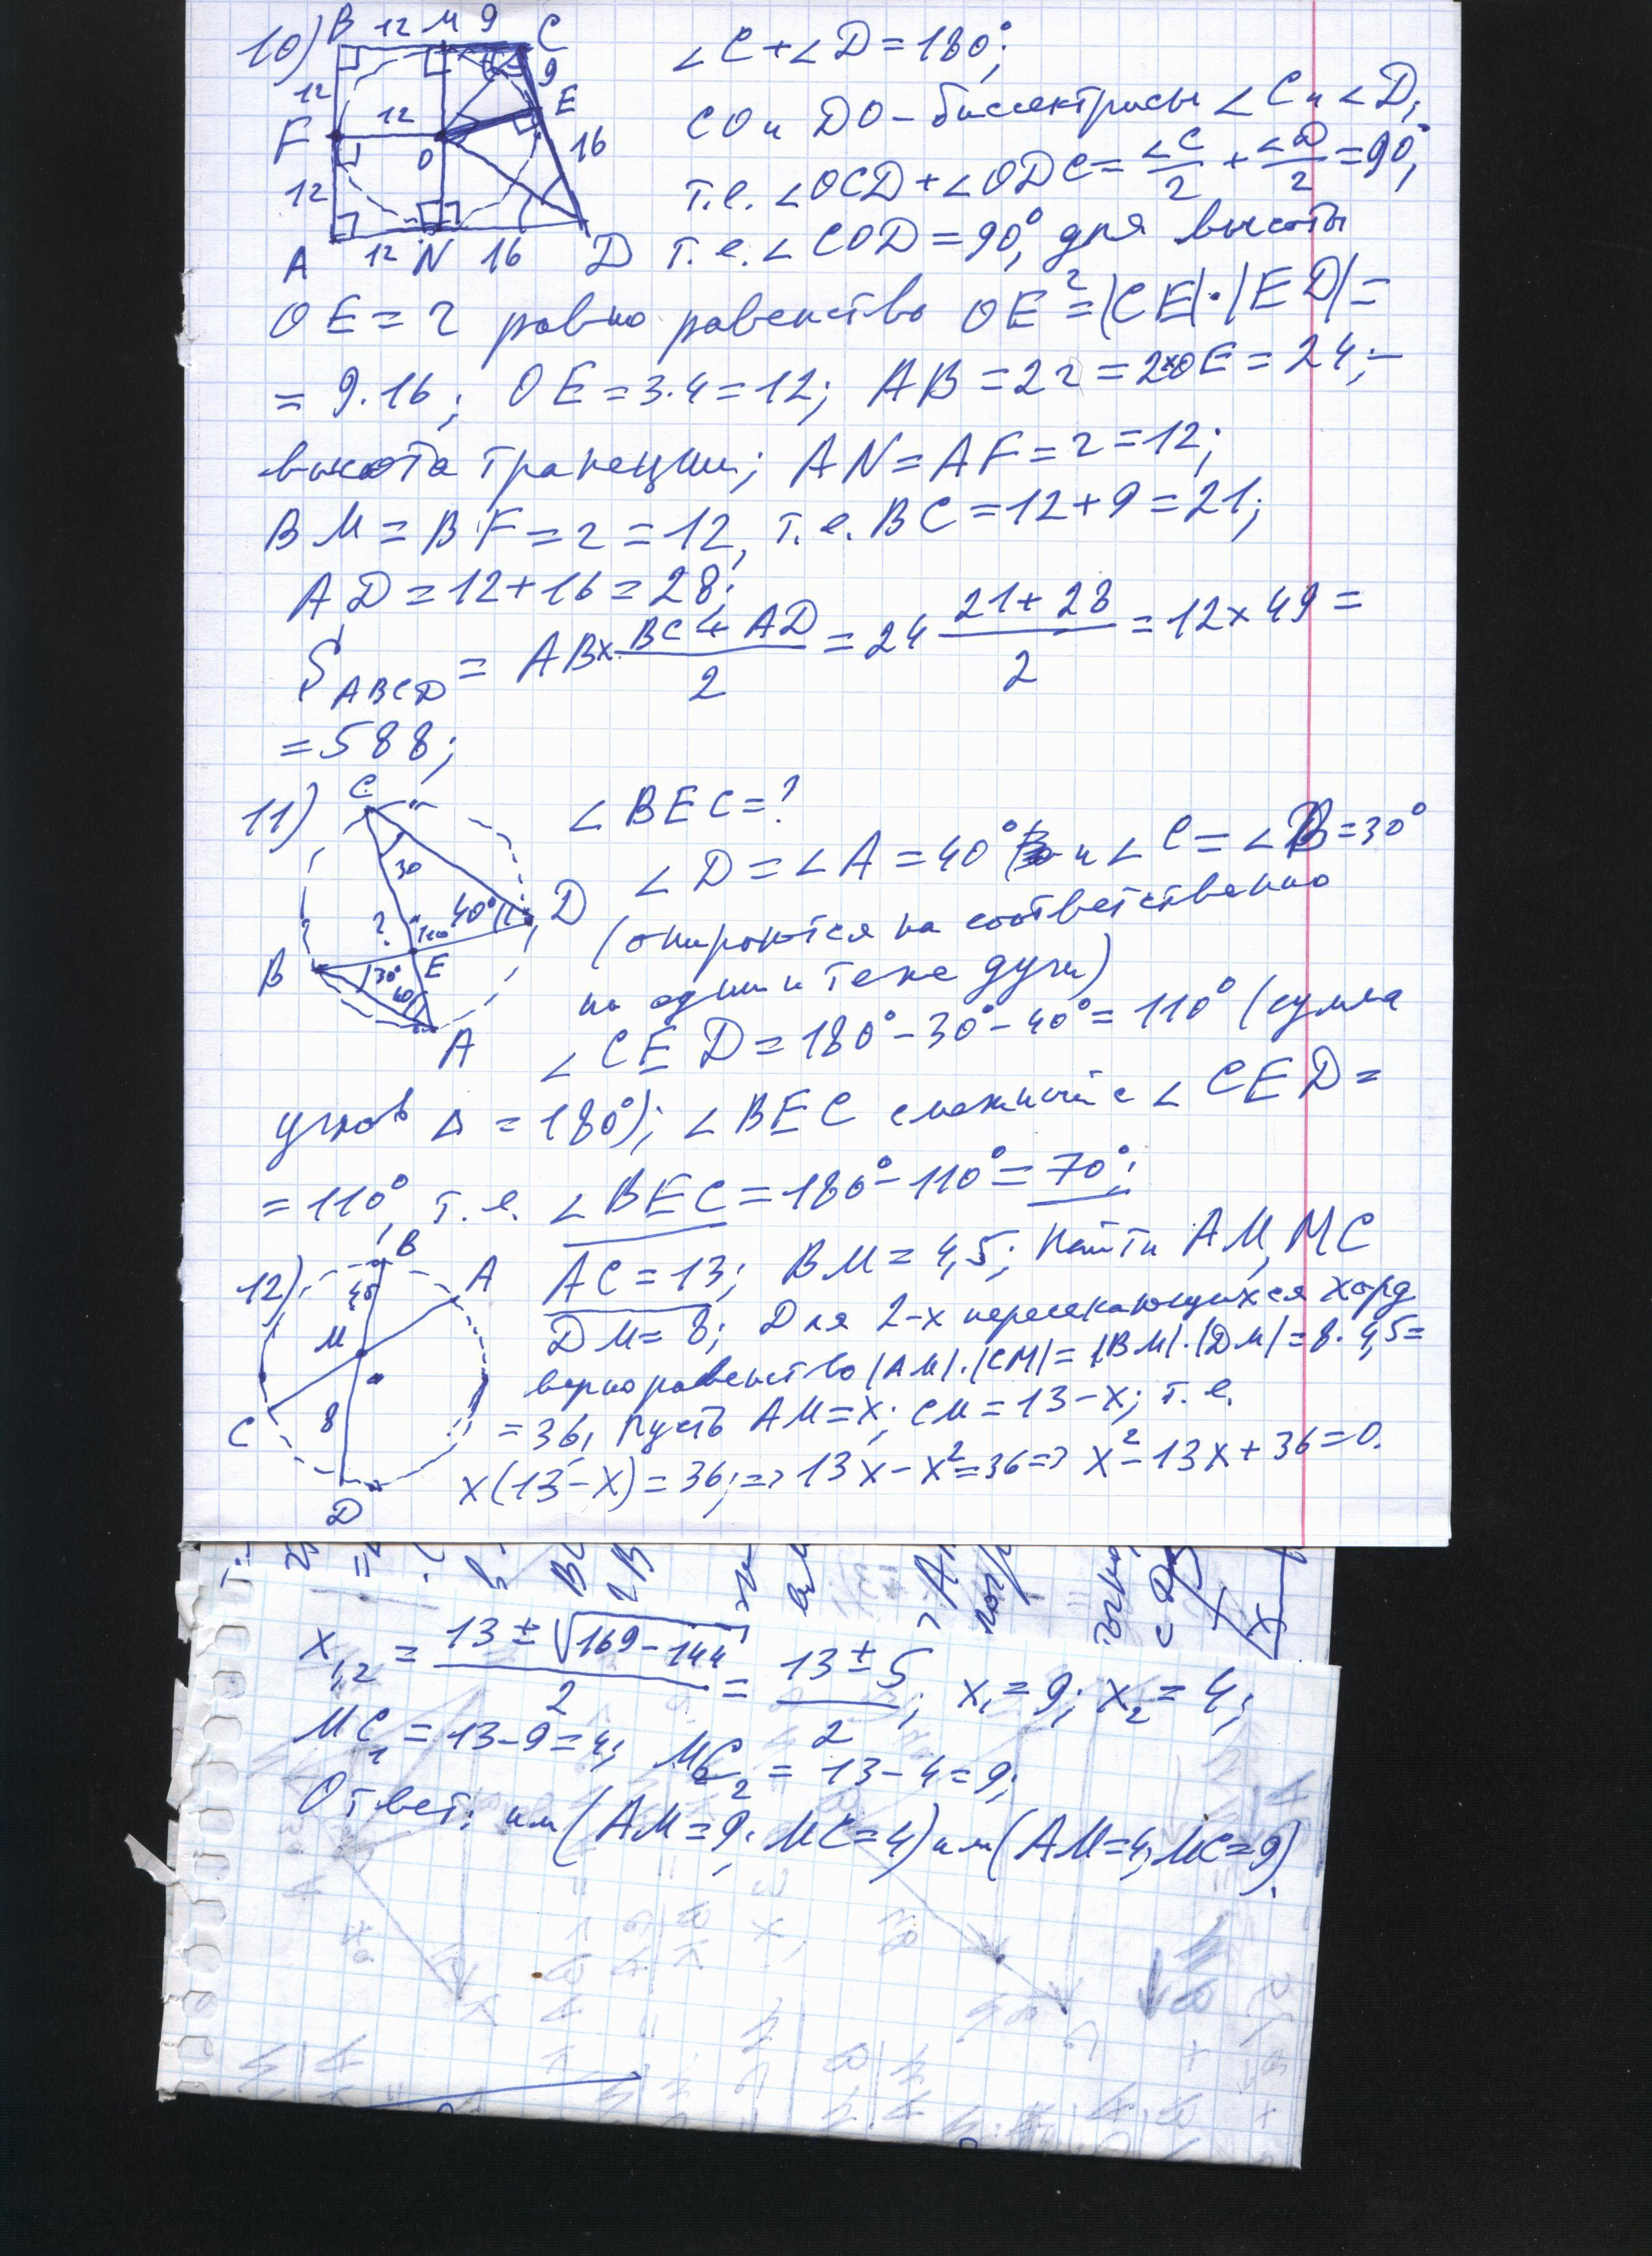 10) B 12 M 9 C
12 9 E
F 12 O 16
12
A 12 N 16 D
∠C+∠D=180°;
CO и DO – биссектрисы ∠C и ∠D;
т.е. ∠OCD+∠ODC=∠C/2+∠D/2=90°,
т.е. ∠COD=90°, для высоты
OE=r равно равенство OE²=|CE|·|ED|=
=9·16; OE=3·4=12; AB=2r=2×OE=24;–
высота трапеции; AN=AF=r=12;
BM=BF=r=12, т.е. BC=12+9=21;
AD=12+16=28;
S ABCD = AB×(BC+AD)/2=24 (21+28)/2=12×49=
=588;
11) C
30
40° D
? 110
B 30° E
40
A
∠BEC=?
∠D=∠A=40° и ∠C=∠B=30°
(опираются на соответственно
на одни и те же дуги)
∠CED=180°-30°-40°=110° (сумма
углов Δ=180°); ∠BEC смежный с ∠CED=
=110°, т.е. ∠BEC=180°-110°=70°;
12) B
4,5 A
M
C 8
D
AC=13; BM=4,5; Найти AM, MC
DM=8; Для 2-х пересекающихся хорд
верно равенство |AM|·|CM|=|BM|·|DM|=8·4,5=
=36, пусть AM=x; CM=13-x; т.е.
x(13-x)=36;=>13x-x²=36=>x²-13x+36=0.
x1,2=(13±√169-144)/2=(13±5)/2; x1=9; x2=4;
MC1=13-9=4; MC2=13-4=9;
Ответ: или (AM=9; MC=4) или (AM=4; MC=9).